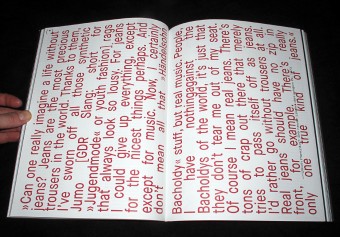 »Can one really imagine a life without
jeans? Jeans are the most precious
trousers in the world. Thanks to them,
I've sworn off all those synthetic
Jumo [GDR slang; short for
»Jugendmode« or youth fashion] rags
that always look so lousy. For jeans
I could give up everything, except
for the nicest things, perhaps. And
except for music. Now, I certainly
don't mean all that »Händelsohn
Bacholdy« stuff, but real music. People,
I have nothing against the
Bacholdys of the world, it's just that
they don't tear me out of my seat.
Of course I mean real jeans. There's
tons of crap out there that merely
tries to pass itself off as jeans.
I'd rather go without trousers at all.
Real jeans would have no zip in
front, for example. There's really
only one true kind of jeans.«